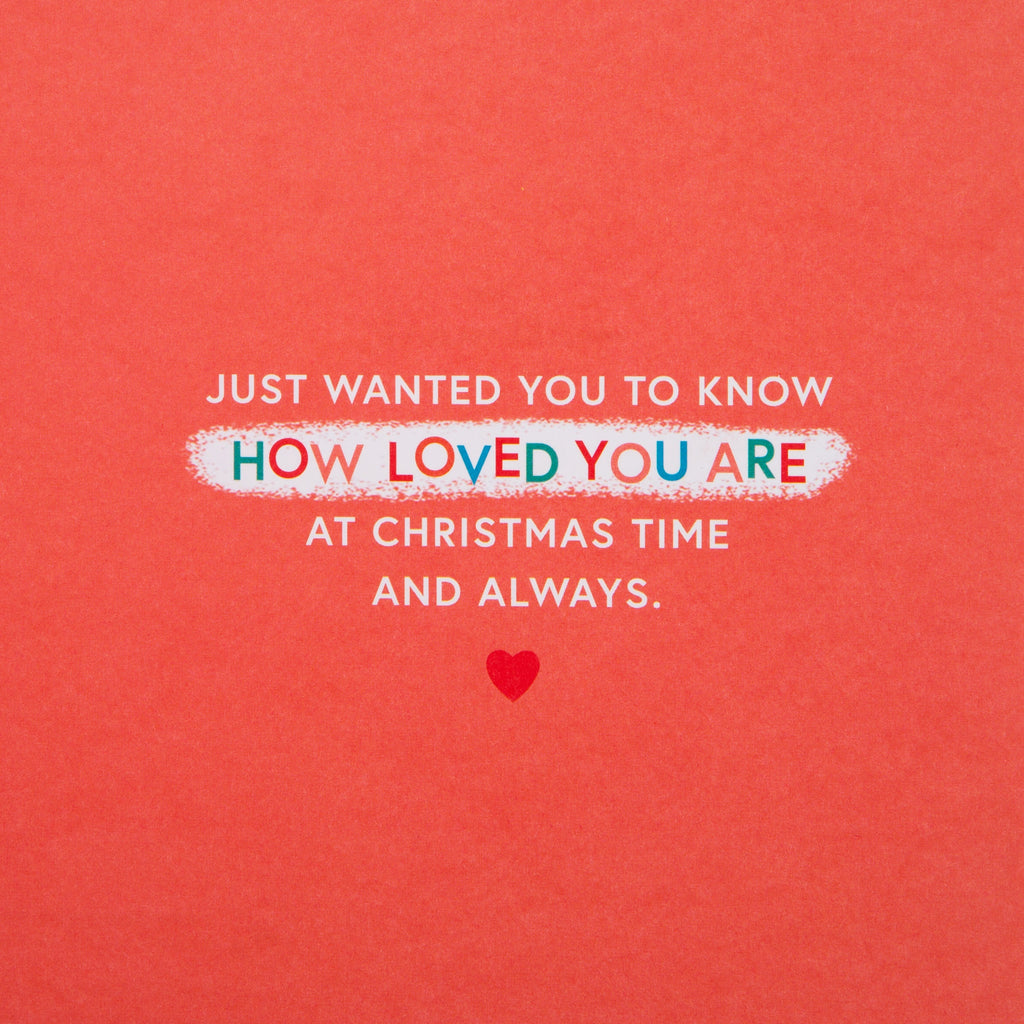 JUST WANTED YOU TO KNOW
HOW LOVED YOU ARE
AT CHRISTMAS TIME
AND ALWAYS.